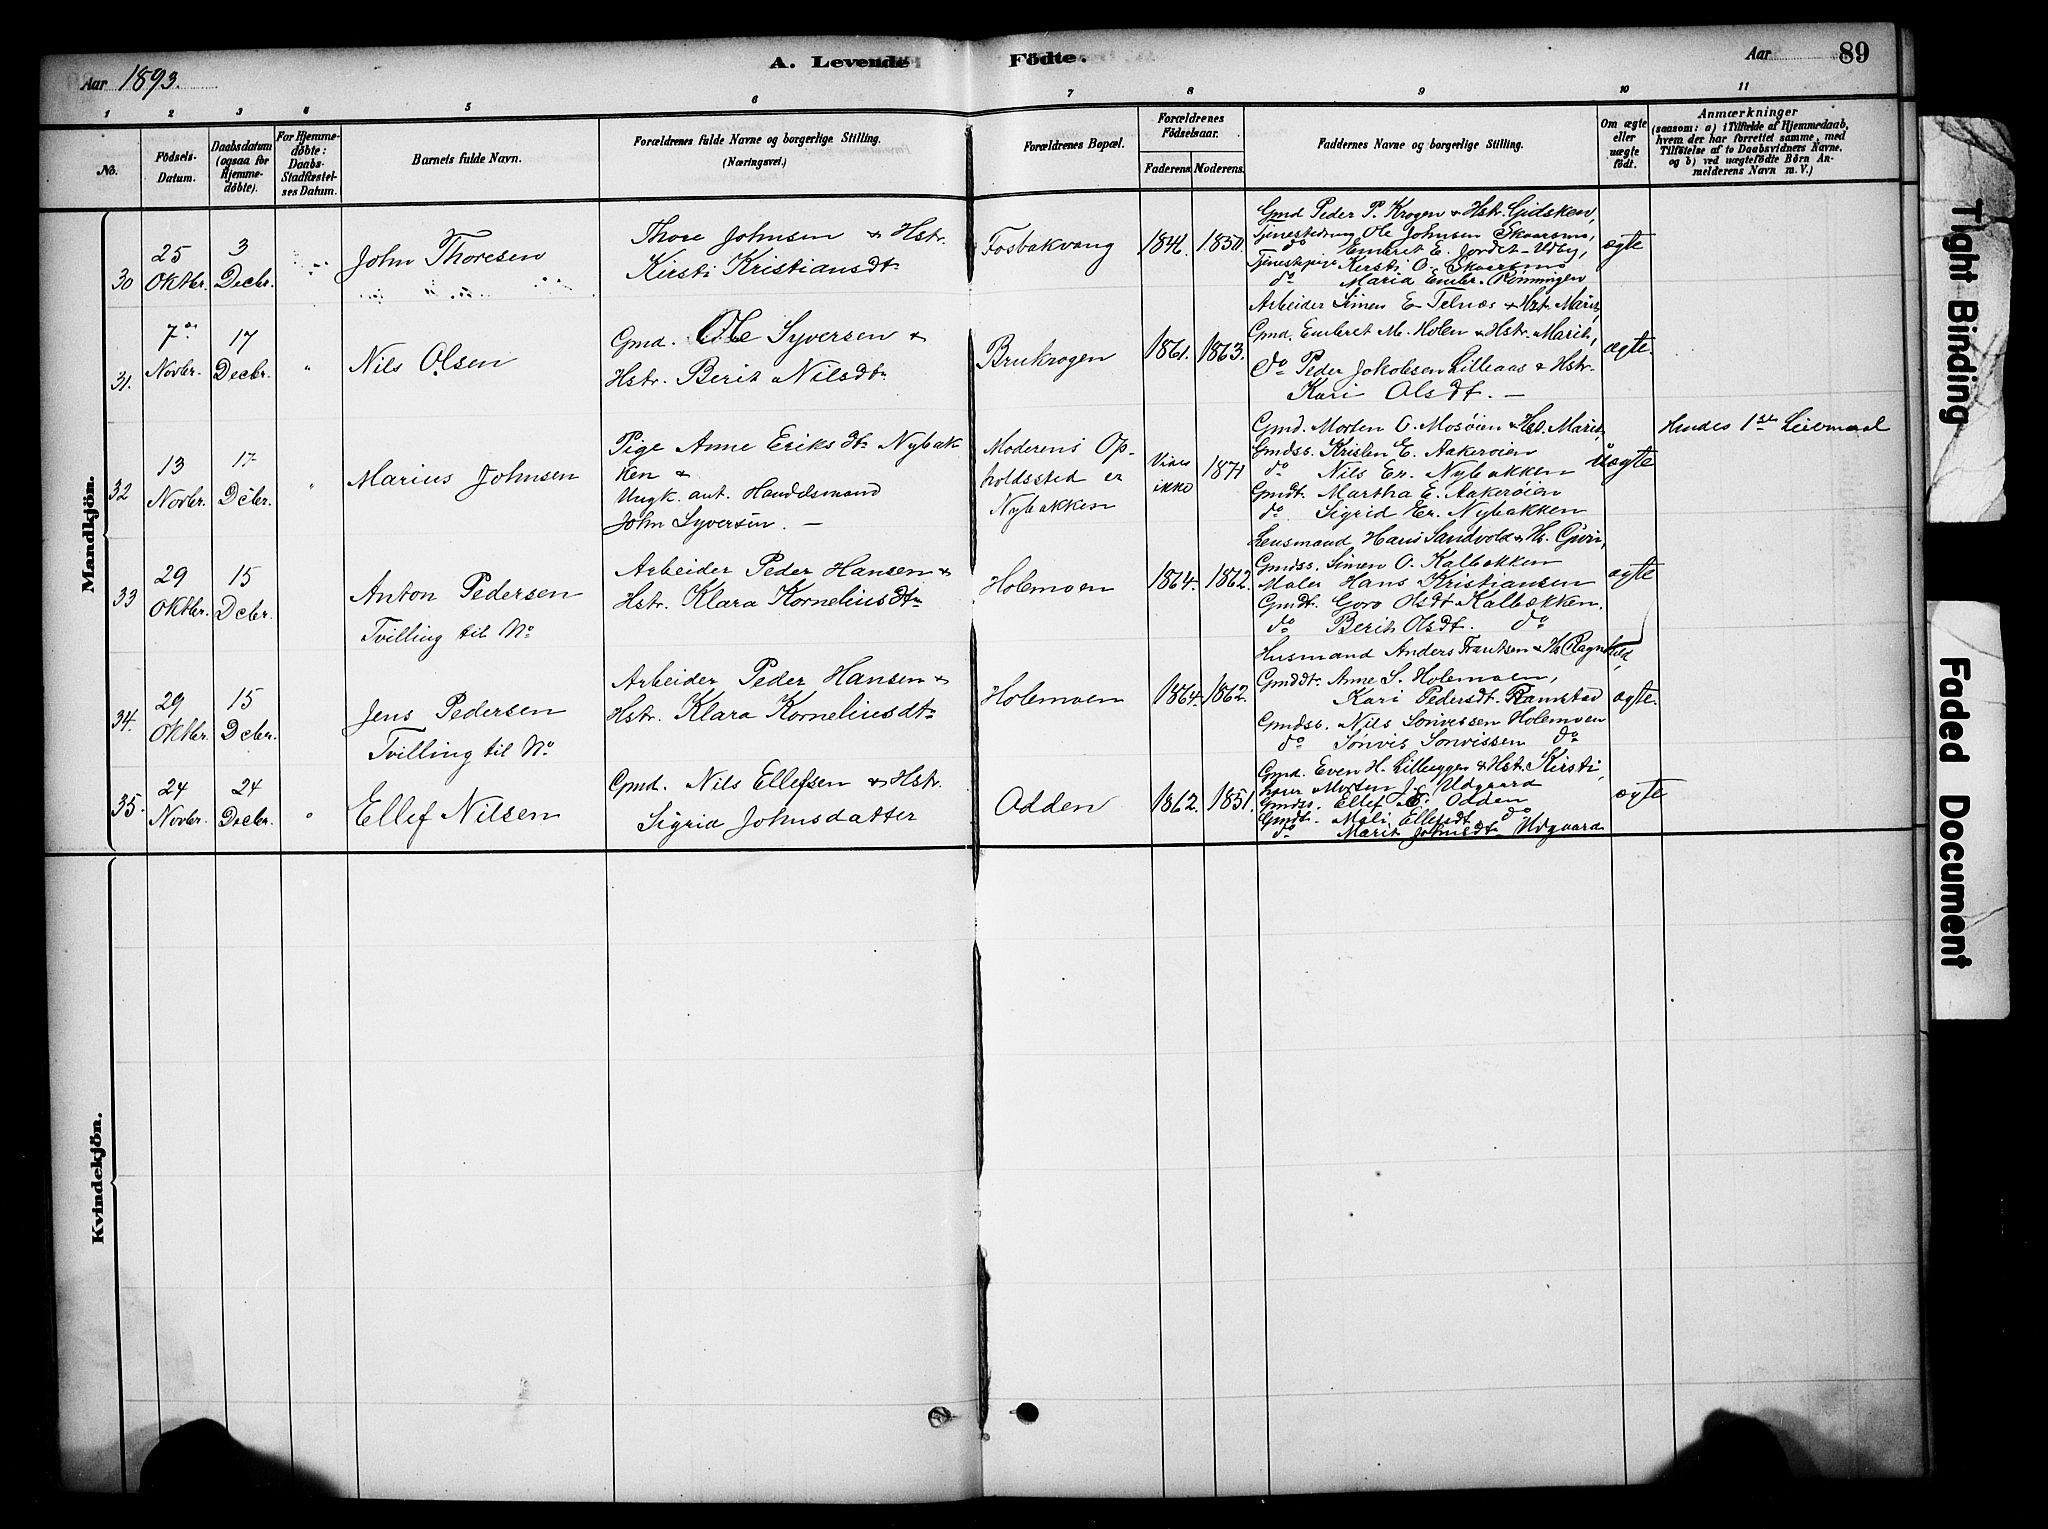 Aar 1893.
A. Levende Födte.
Aar 89
1 2 3 4 5 6 7 8 9 10 11
No.
Födsels-
Datum.
Daabsdatum
(ogsaa for
Hjemme-
döbte).
For Hjemme-
döbte:
Daabs-
Stadfæstel-
ses Datum.
Barnets fulde Navn.
Forældrenes fulde Navne og borgerlige Stilling.
(Næringsvei.)
Forældrenes Bopæl.
Forældrenes
Födselsaar.
Faderens. Moderens.
Faddernes Navne og borgerlige Stilling.
Om ægte
eller
uægte
födt.
Anmærkninger
(saasom: a) i Tilfælde af Hjemmedaab,
hvem der har forrettet samme, med
Tilföielse af to Daabsvidners Navne,
og b) ved uægtefödte Börn An-
melderens Navn m. V.)
Mandkjön.
30
25
Oktbr.
3
Decbr.
John Thoresen
Thore Johnsen & Hstr.
Kirsti Kristiansdtr
Fosbakvang
1846. 1850.
Gmd Peder P. Krogen & Hstr. Gidsken,
Tjenestedreng Ole Johnsen Skaarsmo,
do Embret E. Jordet Udby,
Tjenestpige Kirsti O. Skaarsmo
do Marid Embr. Rönningen
ægte
31.
7de
Novbr.
17
Decbr.
"
Nils Olsen
Gmd. Ole Syversen &
Hstr. Berit Nilsdtr
Brukrogen
1861. 1863.
Arbeider Simen E Telnæs & Hst. Marit,
Gmd. Embret M. Holen & Hstr. Marit,
do Peder Jakobsen Lilleaas & Hstr.
Kari Olsdt. —
ægte.
32
13
Novbr.
17
Dcbr.
"
Marius Johnsen
Pige Anne Eriksdtr Nybak
ken &
Ungk. ant. Handelsmand
John Syversen. —
Moderens Op-
holdssted er
Nybakken
Vides
ikke
1871
Gmd. Morten O. Mosöien & Hs. Marit,
Gmdss. Kristen E. Aakeröien
do Nils Er. Nybakken
Gmdt. Martha E. Aakeröien
do Sigrid Er. Nybakken
uægte
Hendes 1ste Leiermaal
33
29
Oktbr.
15
Dcbr.
Anton Pedersen
Tvilling til No
Arbeider Peder Hansen &
Hstr. Klara Korneliusdtr
Holemoen
1864. 1862.
Lensmand Hans Sandvold & Hs. Guri,
Gmdss. Simen O. Kalbækken
Maler Hans Kristiansen
Gmdt. Goro Olsdt Kalbækken.
do Berit Olsdt. do
ægte
34.
29
Oktbr.
15
Dcbr.
Jens Pedersen
Tvilling til No
Arbeider Peder Hansen &
Hstr. Klara Korneliusdtr
Holemoen
1864. 1862.
Husmand Anders Frantsen & Hs Ragnhild,
Gmddt. Anne S. Holemoen,
Kari Pedersdt. Ramstad
Gmdss. Nils Sönvissen Holemoen
do Sönvis Sönvissen do
ægte.
35.
24
Novbr.
24
Decbr.
"
Ellef Nilsen
Gmd. Nils Ellefsen & Hstr.
Sigrid Johnsdatter
Odden
1862. 1851.
Gmd. Even H. Lilleeggen & Hst. Kirsti,
Morten J. Udgaard
Gmdss. Ellef E. Odden
Gmdt. Mali Ellefsdt do
do Marit Johnsdt Udgaard
ægte
Kvindekjön.
Tight Binding
Faded Document